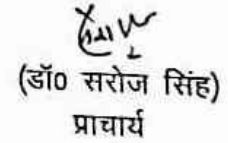 (डॉ0 सरोज सिंह)
प्राचार्य